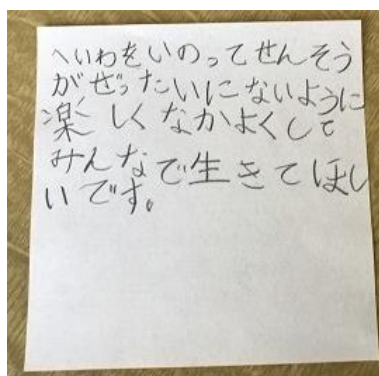 へいわをいのってせんそう
がぜったいにないように
楽しくなかよくして
みんなで生きてほし
いです。